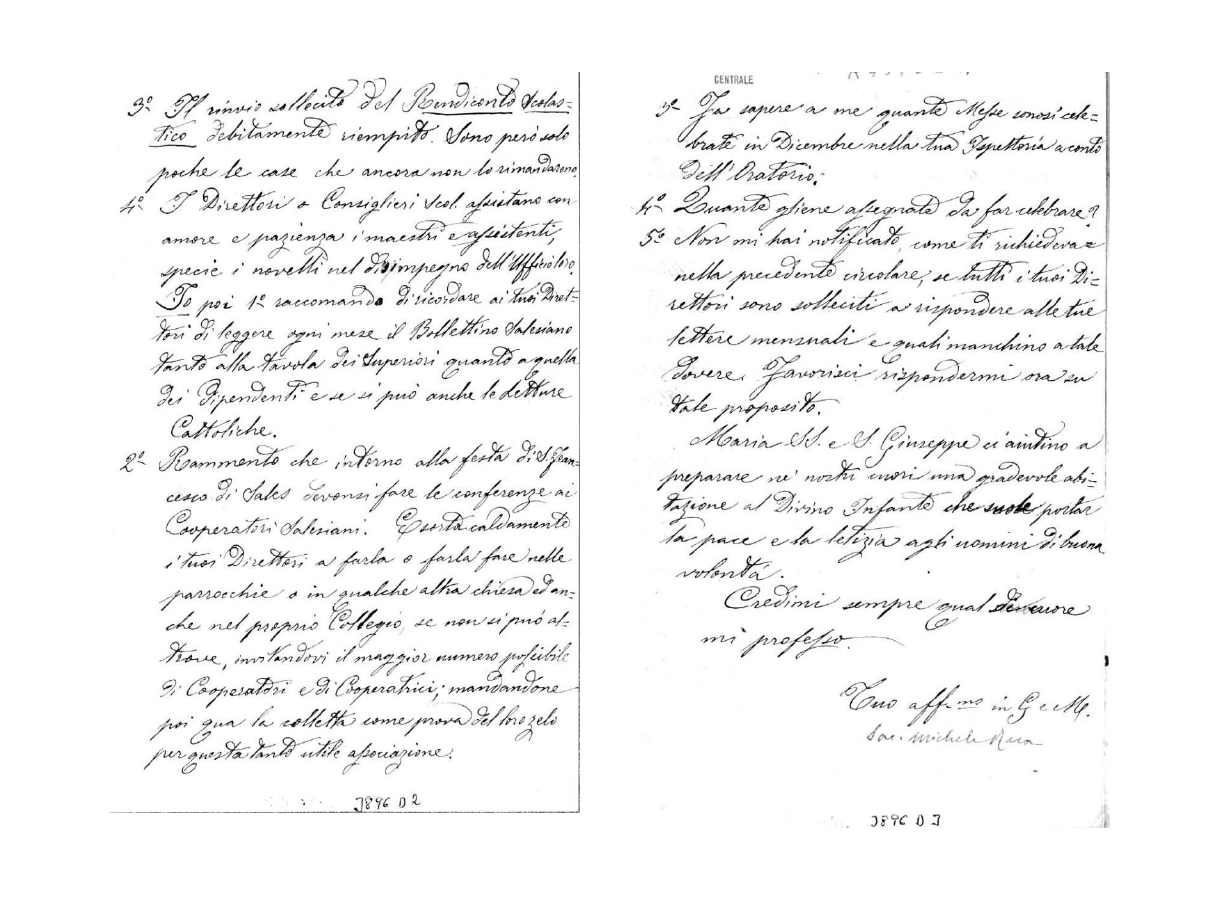 3º Il rinvio sollecito del Rendiconto Scolas=
tico debitamente riempito. Sono però solo
poche le case che ancora non lo rimandarono.
4º I Direttori o Consiglieri Scol. assistano con
amore e pazienza i maestri e assistenti,
specie i novelli nel disimpegno dell'Ufficio loro
Io poi 1º raccomando di ricordare ai tuoi Diret=
tori di leggere ogni mese il Bollettino Salesiano
tanto alla tavola dei Superiori quanto a quella
dei Dipendenti e se si può anche le Letture
Cattoliche.
2º Rammento che intorno alla festa di S. Fran=
cesco di Sales devonsi fare le conferenze ai
Cooperatori Salesiani. Esorta caldamente
i tuoi Direttori a farla o farla fare nelle
parrocchie o in qualche altra chiesa ed an=
che nel proprio Collegio, se non si può al=
trove, invitandovi il maggior numero possibile
di Cooperatori e di Cooperatrici; mandandone
poi qua la colletta come prova del loro zelo
per questa tanto utile associazione.
3896 D 2
CENTRALE
3º Fa sapere a me quante Messe sonosi cele=
brate in Dicembre nella tua Ispettoria a conto
dell'Oratorio;
4º Quante gliene assegnate da far celebrare?
5º Non mi hai notificato, come ti richiedeva=
nella precedente circolare, se tutti i tuoi Di=
rettori sono solleciti a rispondere alle tue
lettere mensuali e quali manchino a tale
dovere. Favorisci rispondermi ora su
tale proposito.
Maria SS. e S. Giuseppe ci aiutino a
preparare ne' nostri cuori una gradevole abi=
tazione al Divino Infante che suole portar
la pace e la letizia agli uomini di buona
volontà.
Credimi sempre qual di cuore
mi professo.
Tuo aff.mo in G. e M.
Sac. Michele Rua
3896 D 3